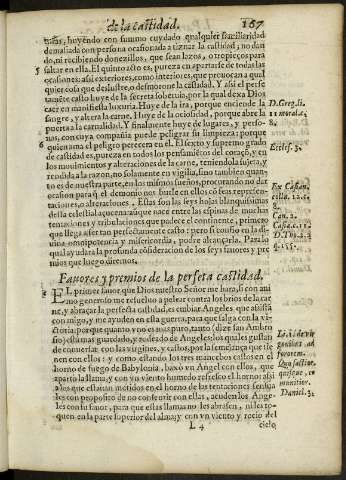 de la castidad. 167
uras, huyendo con summo cuydado qualquier familiaridad
demasiada con persona ocasionada a tiznar la castidad, no dan
do, ni recibiendo donezillos, que sean lazos, o tropieços para
5 faltar en ella. El quinto acto es, pureza en apartarse de todas las
ocasiones: assi exteriores, como interiores, que prouocan a qual
quier cosa que deslustre, o desmorone la castidad. Y assi el perfe
tamẽte casto huye de la secreta soberuia, por la qual dexa Dios
caer en manifiesta luxuria. Huye de la ira, porque enciende la
sangre, y altera la carne. Huye de la ociosidad, porque abre la
puerta a la carnalidad. Y finalmente huye de lugares, y perso-
nas, con cuya compañia puede peligrar su limpieza: porque
6 quien ama el peligro perecera en el. El sexto y supremo grado
de castidad es, pureza en todos los pensamiẽtos del coraçõ, y en
los mouimientos y alteraciones de la carne, teniendola sujeta, y
rendida a la razon, no solamente en vigilia, sino tambien quan-
to es de nuestra parte, en los mismos sueños, procurando no dar
ocasion para q̃ el demonio nos burle en ellos cõ feas represen-
taciones, o alteraciones. Estas son las seys hojas blanquissimas
de la celestial açucena, aunque nace entre las espinas de muchas
tentaciones y tribulaciones que padece el continente, primero
que llega a ser tan perfectamente casto: pero si confio en la di
uina omnipotencia y misericordia, podre alcançarla. Para lo
qual ayudara la profunda cõsideracion de los seys fauores y pre
mios que luego diremos.
D. Greg. li.
moral. c.
8.
Eccles. 3.
Ex Casian.
colla. 12. c.
8.
Can. 2.
D. Th. 2. 2
q. 151.
Fauores y premios de la perfeta castidad.
1 EL primer fauor que Dios nuestro Señor me hara, si con ani
mo generoso me resueluo a pelear contra los brios de la car
ne, y abraçar la perfecta castidad, es, embiar Angeles que assistã
con migo, y me ayuden en esta guerra, para que salga con la vi-
ctoria: porque quanto vno es mas puro, tanto (dize san Ambro
sio) està mas guardado, y rodeado de Angeles, los quales gustan
de conuersar con las virgines, y castos, por la semejança que tie
nen con ellos: y como estando los tres mancebos castos en el
horno de fuego de Babylonia, baxò vn Angel con ellos, que
apartò la llama, y con vn viento humedo refresco el horno: assi
a los que estauan metidos en el horno de las tentaciones sensua
les con proposito de no consentir con ellas, acuden los Ange-
les con su fauor, para que estas llamas no les abrasen, ni les to-
quen en la parte superior del alma: y con vn viento y rocio del
L 4 cielo,
Li. 1. de vir
ginibus ad
sororem.
Daniel. 3.